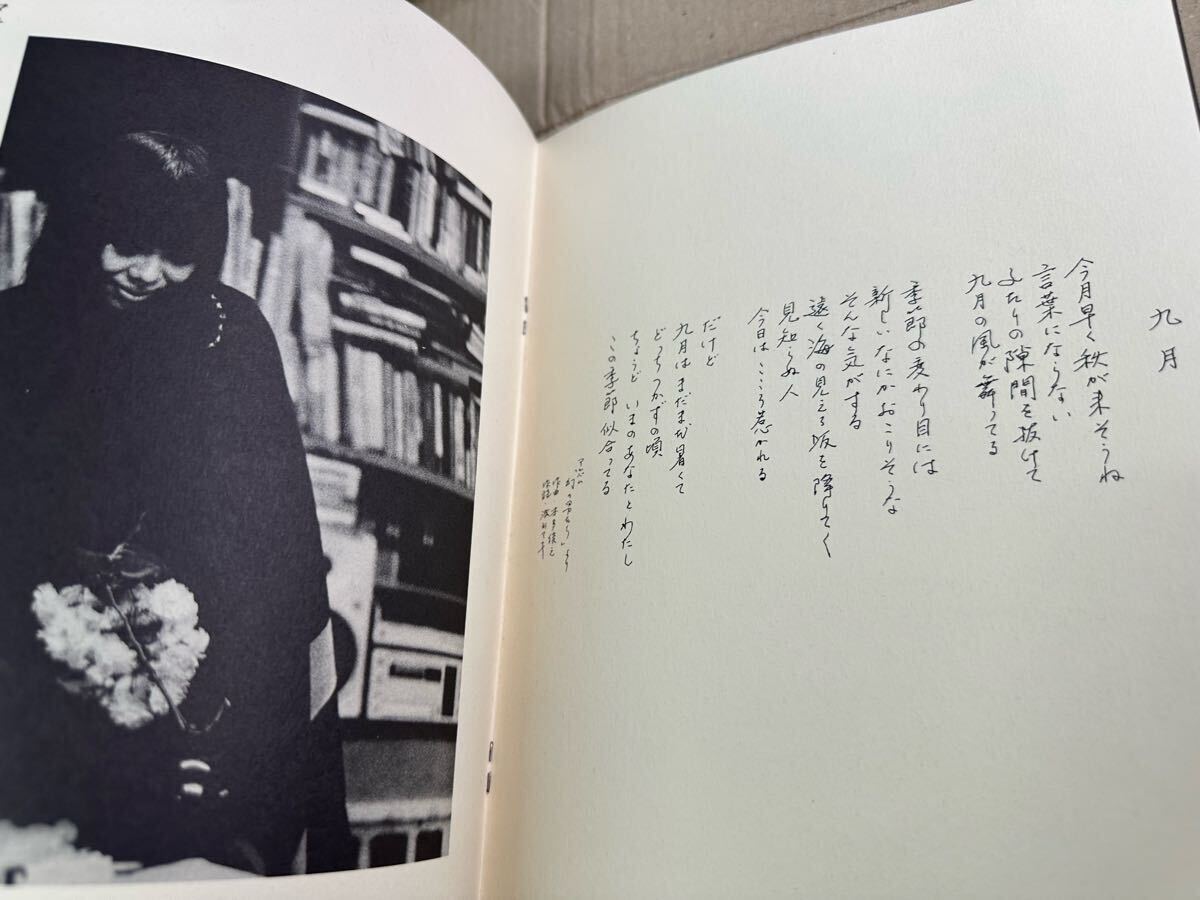 九月
今月早く秋が来そうね
言葉にならない
ふたりの隙間を抜けて
九月の風が舞ってる
季節の変わり目には
新しいなにかおこりそうな
そんな気がする
遠く海の見える坂を降りてく
見知らぬ人
今日は こころ惹かれる
だけど
九月はまだまだ暑くて
どっちつかずの頃
ちょうど いまのあなたとわたし
この季節 似合ってる
アルバム
より
作曲 本多俊之
作詞・